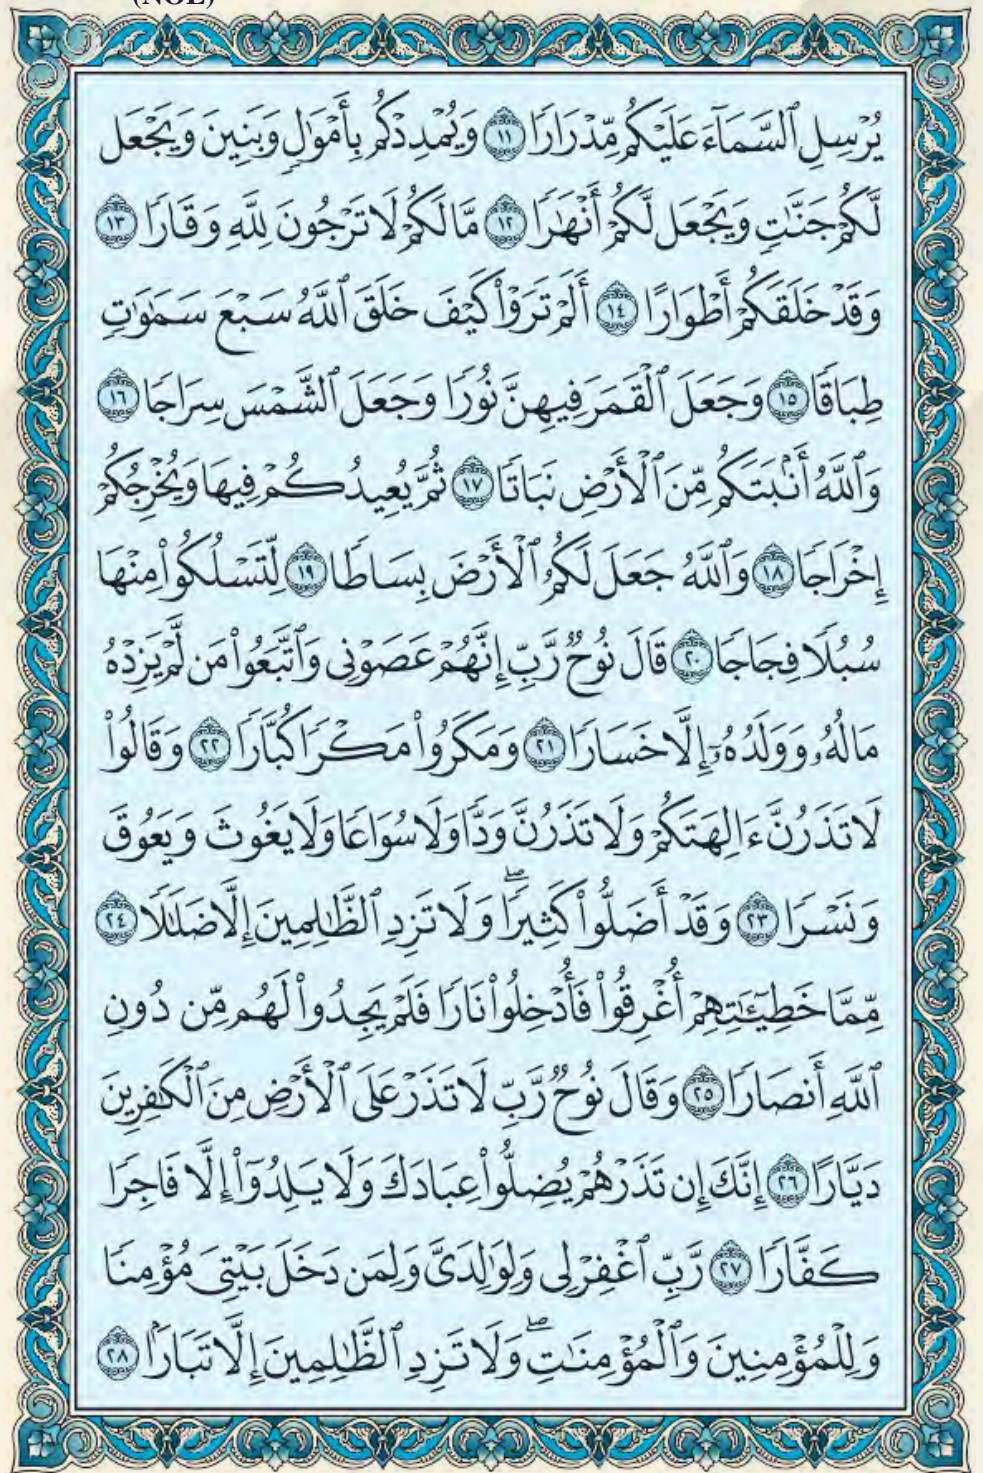 (NOE)
يُرْسِلِ ٱلسَّمَآءَ عَلَيْكُم مِّدْرَارًا ١١ وَيُمْدِدْكُم بِأَمْوَٰلٍ وَبَنِينَ وَيَجْعَل
لَّكُمْ جَنَّٰتٍ وَيَجْعَل لَّكُمْ أَنْهَٰرًا ١٢ مَّا لَكُمْ لَا تَرْجُونَ لِلَّهِ وَقَارًا ١٣
وَقَدْ خَلَقَكُمْ أَطْوَارًا ١٤ أَلَمْ تَرَوْا۟ كَيْفَ خَلَقَ ٱللَّهُ سَبْعَ سَمَٰوَٰتٍ
طِبَاقًا ١٥ وَجَعَلَ ٱلْقَمَرَ فِيهِنَّ نُورًا وَجَعَلَ ٱلشَّمْسَ سِرَاجًا ١٦
وَٱللَّهُ أَنۢبَتَكُم مِّنَ ٱلْأَرْضِ نَبَاتًا ١٧ ثُمَّ يُعِيدُكُمْ فِيهَا وَيُخْرِجُكُمْ
إِخْرَاجًا ١٨ وَٱللَّهُ جَعَلَ لَكُمُ ٱلْأَرْضَ بِسَاطًا ١٩ لِّتَسْلُكُوا۟ مِنْهَا
سُبُلًا فِجَاجًا ٢٠ قَالَ نُوحٌ رَّبِّ إِنَّهُمْ عَصَوْنِى وَٱتَّبَعُوا۟ مَن لَّمْ يَزِدْهُ
مَالُهُۥ وَوَلَدُهُۥٓ إِلَّا خَسَارًا ٢١ وَمَكَرُوا۟ مَكْرًا كُبَّارًا ٢٢ وَقَالُوا۟
لَا تَذَرُنَّ ءَالِهَتَكُمْ وَلَا تَذَرُنَّ وَدًّا وَلَا سُوَاعًا وَلَا يَغُوثَ وَيَعُوقَ
وَنَسْرًا ٢٣ وَقَدْ أَضَلُّوا۟ كَثِيرًا ۖ وَلَا تَزِدِ ٱلظَّٰلِمِينَ إِلَّا ضَلَٰلًا ٢٤
مِّمَّا خَطِيٓـَٰٔتِهِمْ أُغْرِقُوا۟ فَأُدْخِلُوا۟ نَارًا فَلَمْ يَجِدُوا۟ لَهُم مِّن دُونِ
ٱللَّهِ أَنصَارًا ٢٥ وَقَالَ نُوحٌ رَّبِّ لَا تَذَرْ عَلَى ٱلْأَرْضِ مِنَ ٱلْكَٰفِرِينَ
دَيَّارًا ٢٦ إِنَّكَ إِن تَذَرْهُمْ يُضِلُّوا۟ عِبَادَكَ وَلَا يَلِدُوٓا۟ إِلَّا فَاجِرًا
كَفَّارًا ٢٧ رَّبِّ ٱغْفِرْ لِى وَلِوَٰلِدَىَّ وَلِمَن دَخَلَ بَيْتِىَ مُؤْمِنًا
وَلِلْمُؤْمِنِينَ وَٱلْمُؤْمِنَٰتِ ۖ وَلَا تَزِدِ ٱلظَّٰلِمِينَ إِلَّا تَبَارًۢا ٢٨